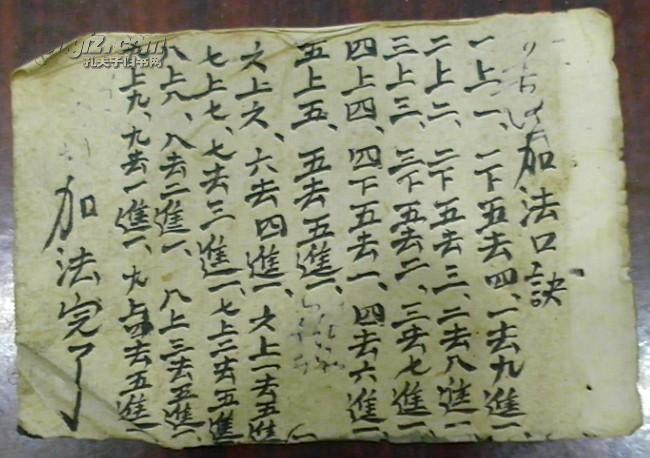 加法口訣
一上一、一下五去四、一去九進一、
二上二、二下五去三、二去八進一、
三上三、三下五去二、三去七進一、
四上四、四下五去一、四去六進一、
五上五、五去五進一、
六上六、六去四進一、六上一去五進一
七上七、七去三進一、七上二去五進一
八上八、八去二進一、八上三去五進一、
九上九、九去一進一、九上四去五進一
加法完了
孔夫子旧书网